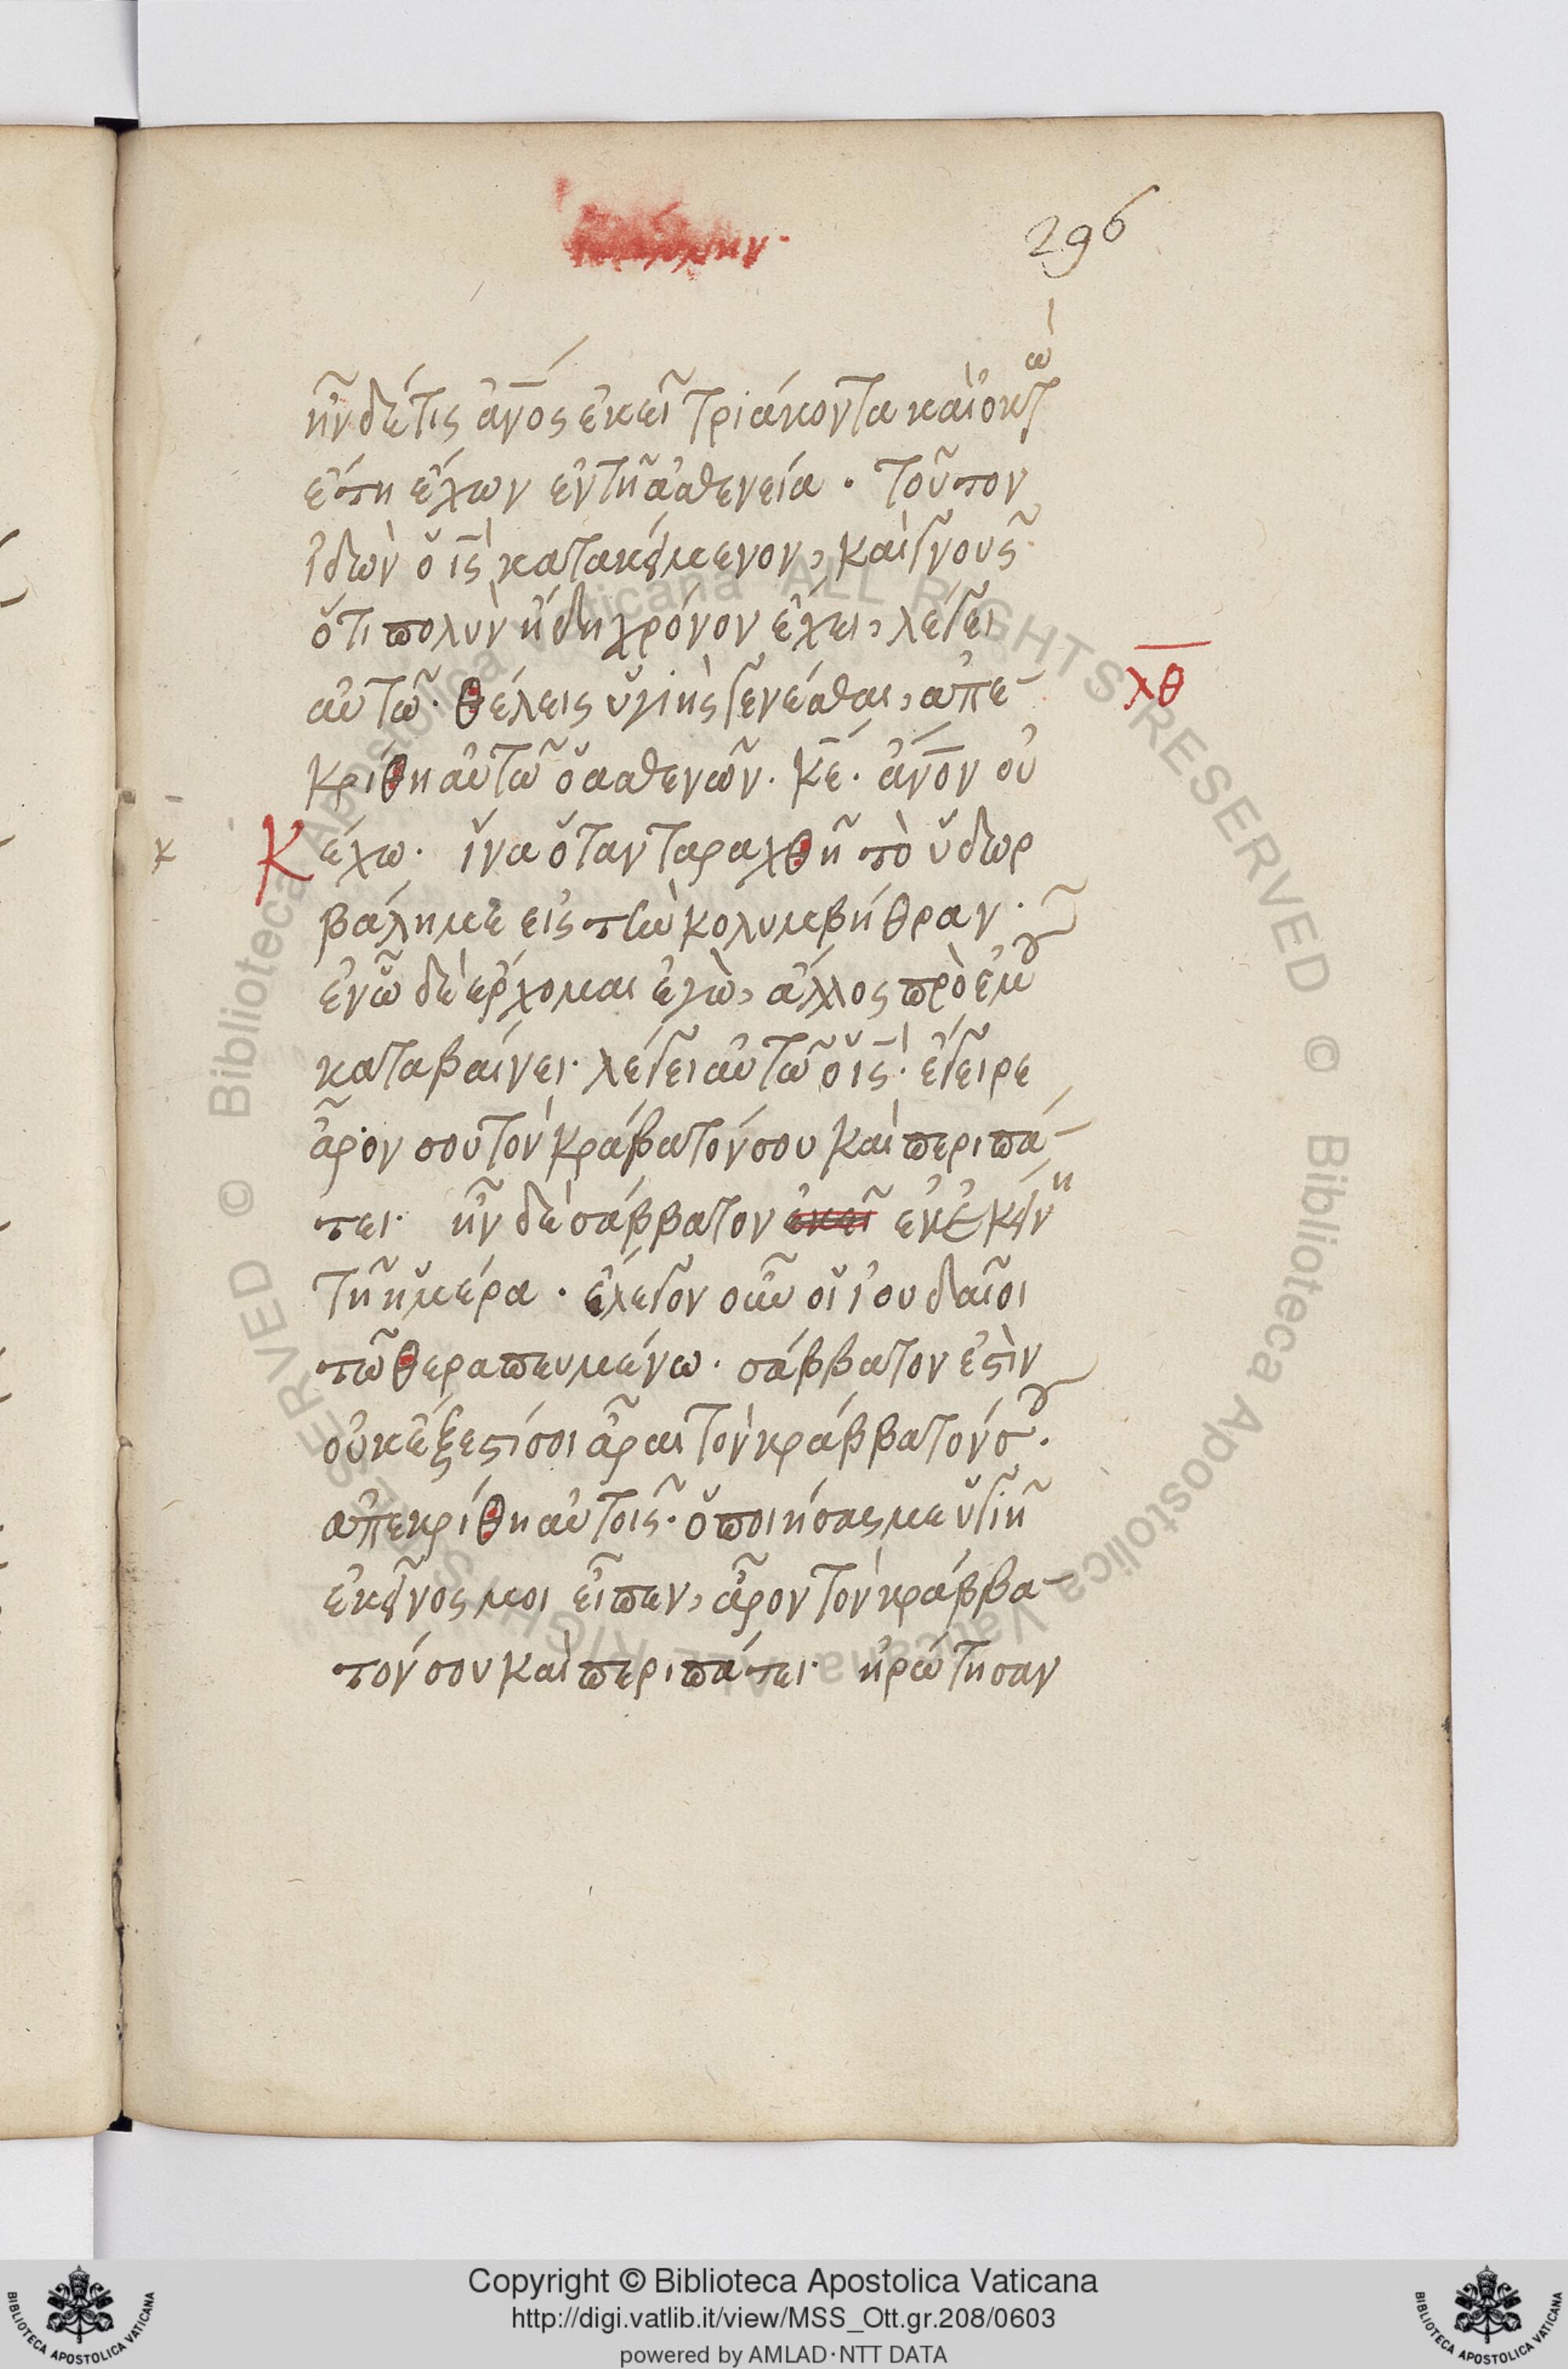 296
ἦν δέ τις ἄνος ἐκεῖ τριάκοντα καὶ ὀκτὼ
ἔτη ἔχων ἐν τῆ ἀσθενεία · τοῦτον
ἰδὼν ὁ ις κατακείμενον, καὶ γνοὺς
ὅτι πολὺν ἤδη χρόνον ἔχει, λέγει
αὐτῶ · θέλεις ὑγιὴς γενέσθαι, ἀπε-
χθ
κρίθη αὐτῶ ὁ ἀσθενῶν · κε · ἄνον οὐ
Κ ἔχω · ἵνα ὅταν ταραχθῆ τὸ ὕδωρ
βάλη με εἰς τὴν κολυμβήθραν ·
ἐν ὧ δὲ ἔρχομαι ἐγὼ, ἄλλος πρὸ ἐμοῦ
καταβαίνει · λέγει αὐτῶ ὁ ις · ἔγειρε
ἆρον σου τὸν κράβατόν σου καὶ περιπά-
τει · ἦν δὲ σάββατον ἐκεῖ ἐν ἐκείνη
τῆ ἡμέρα · ἔλεγον οὖν οἱ ἰουδαῖοι
τῶ θεραπευμένω · σάββατον ἐστὶν
οὐκ ἔξεστί σοι ἆραι τὸν κράββατόν σου ·
ἀπεκρίθη αὐτοῖς · ὁ ποιήσας με ὑγιῆ
ἐκεῖνος μοι εἶπεν, ἆρον τὸν κράββα-
τόν σου καὶ περιπάτει · ἠρώτησαν
Copyright © Biblioteca Apostolica Vaticana
http://digi.vatlib.it/view/MSS_Ott.gr.208/0603
powered by AMLAD·NTT DATA